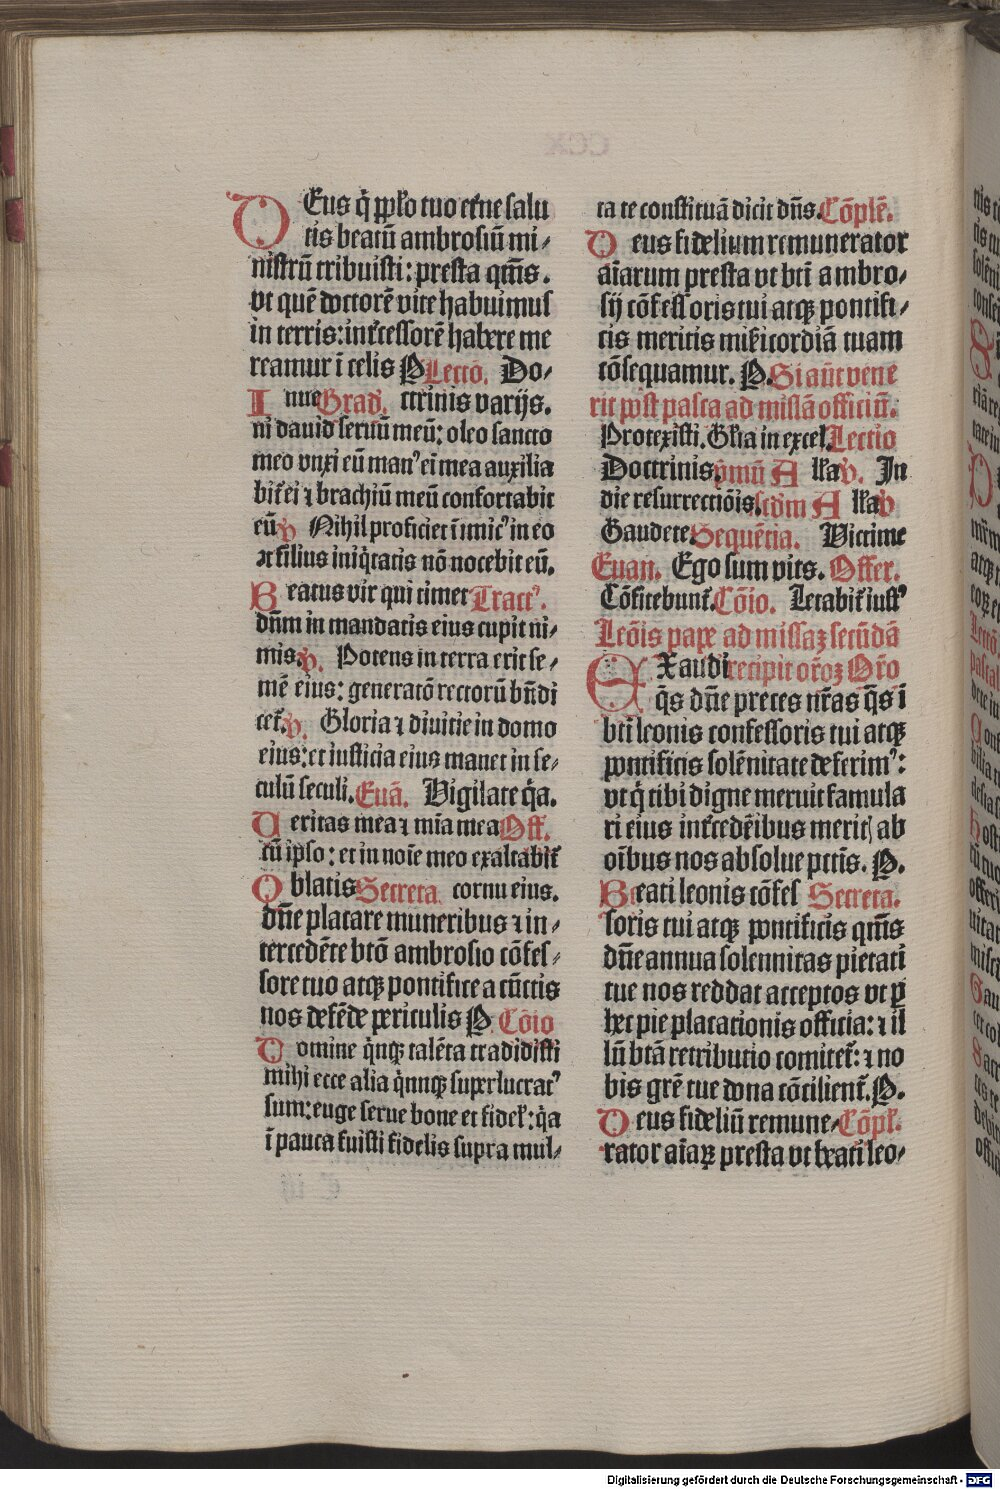 DEus q̄ ppl̄o tuo et̄ne salu
tis beatū ambrosiū mi⸗
nistrū tribuisti: presta qm̄s.
vt quē doctorē vite habuimus
in terris: int̄cessorē habere me
reamur ī celis P Lectō. Do⸗
I nue Grad. ctrinis varijs.
ni dauid seruū meū: oleo sancto
meo vnxi eū man⁹ eī mea auxilia
bit̄ ei ⁊ brachiū meū confortabit
eū v Nihil proficiet īimic⁹ in eo
⁊ filius iniq̇tatis nō nocebit eū.
Beatus vir qui timet Tract⁹.
dn̄m in mandatis eius cupit ni⸗
mis. v. Potens in terra erit se⸗
mē eius: generatō rectorū bn̄di
cet̄. v. Gloria ⁊ diuitie in domo
eius: et iusticia eius manet in se⸗
culū seculi. Euā. Vigilate q̇a.
Veritas mea ⁊ mīa mea Off.
cū ipso: et in noīe meo exaltabit̄
Oblatis Secreta cornu eius.
dn̄e placare muneribus ⁊ in⸗
tercedēte btō ambrosio cōfes⸗
sore tuo atqꝫ pontifice a cūctis
nos defēde periculis P Cōio
Domine q̇nqꝫ talēta tradidisti
mihi ecce alia q̇nnqꝫ superlucrat⁹
sum: euge serue bone et fidel̄: q̇a
ī pauca fuisti fidelis supra mul⸗
ta te constituā dicit dn̄s. Cōplē.
Deus fidelium remunerator
aīarum presta vt btī ambro⸗
sij cōfessoris tui atqꝫ pontifi⸗
cis meritis mīsericordiā tuam
cōsequamur. P. Si aūt vene
rit post pasca ad missā officiū.
Protexisti. Gl̄ia in excel. Lectio
Doctrinis. pmū A ll̄a v. In
die resurrectiōis. scdm A ll̄a v
Gaudete. Sequētia. Victime
Euan. Ego sum vitis. Offer.
Cōfitebunt̄. Cōio. Letabit̄ iust⁹
Leōis pape ad missaꝫ secūdā
EXaudi recipit orōꝫ Orō
q̄s dn̄e preces nr̄as q̄s ī
btī leonis confessoris tui atqꝫ
pontificis solēnitate deferim⁹:
vt q̇ tibi digne meruit famula
ri eius int̄cedētibus merit̄ ab
oībus nos absolue pctīs. P.
Beati leonis cōfes Secreta.
soris tui atqꝫ pontificis qm̄s
dn̄e annua solennitas pietati
tue nos reddat acceptos vt p
hec pie placationis officia: ⁊ il
lū btā retributio comitet̄: ⁊ no
bis grē tue dona cōcilient̄. P.
Deus fidelium remune⸗ Cōpl̄.
rator aīaꝝ presta vt beati leo⸗
Digitalisierung gefördert durch die Deutsche Forschungsgemeinschaft - DFG